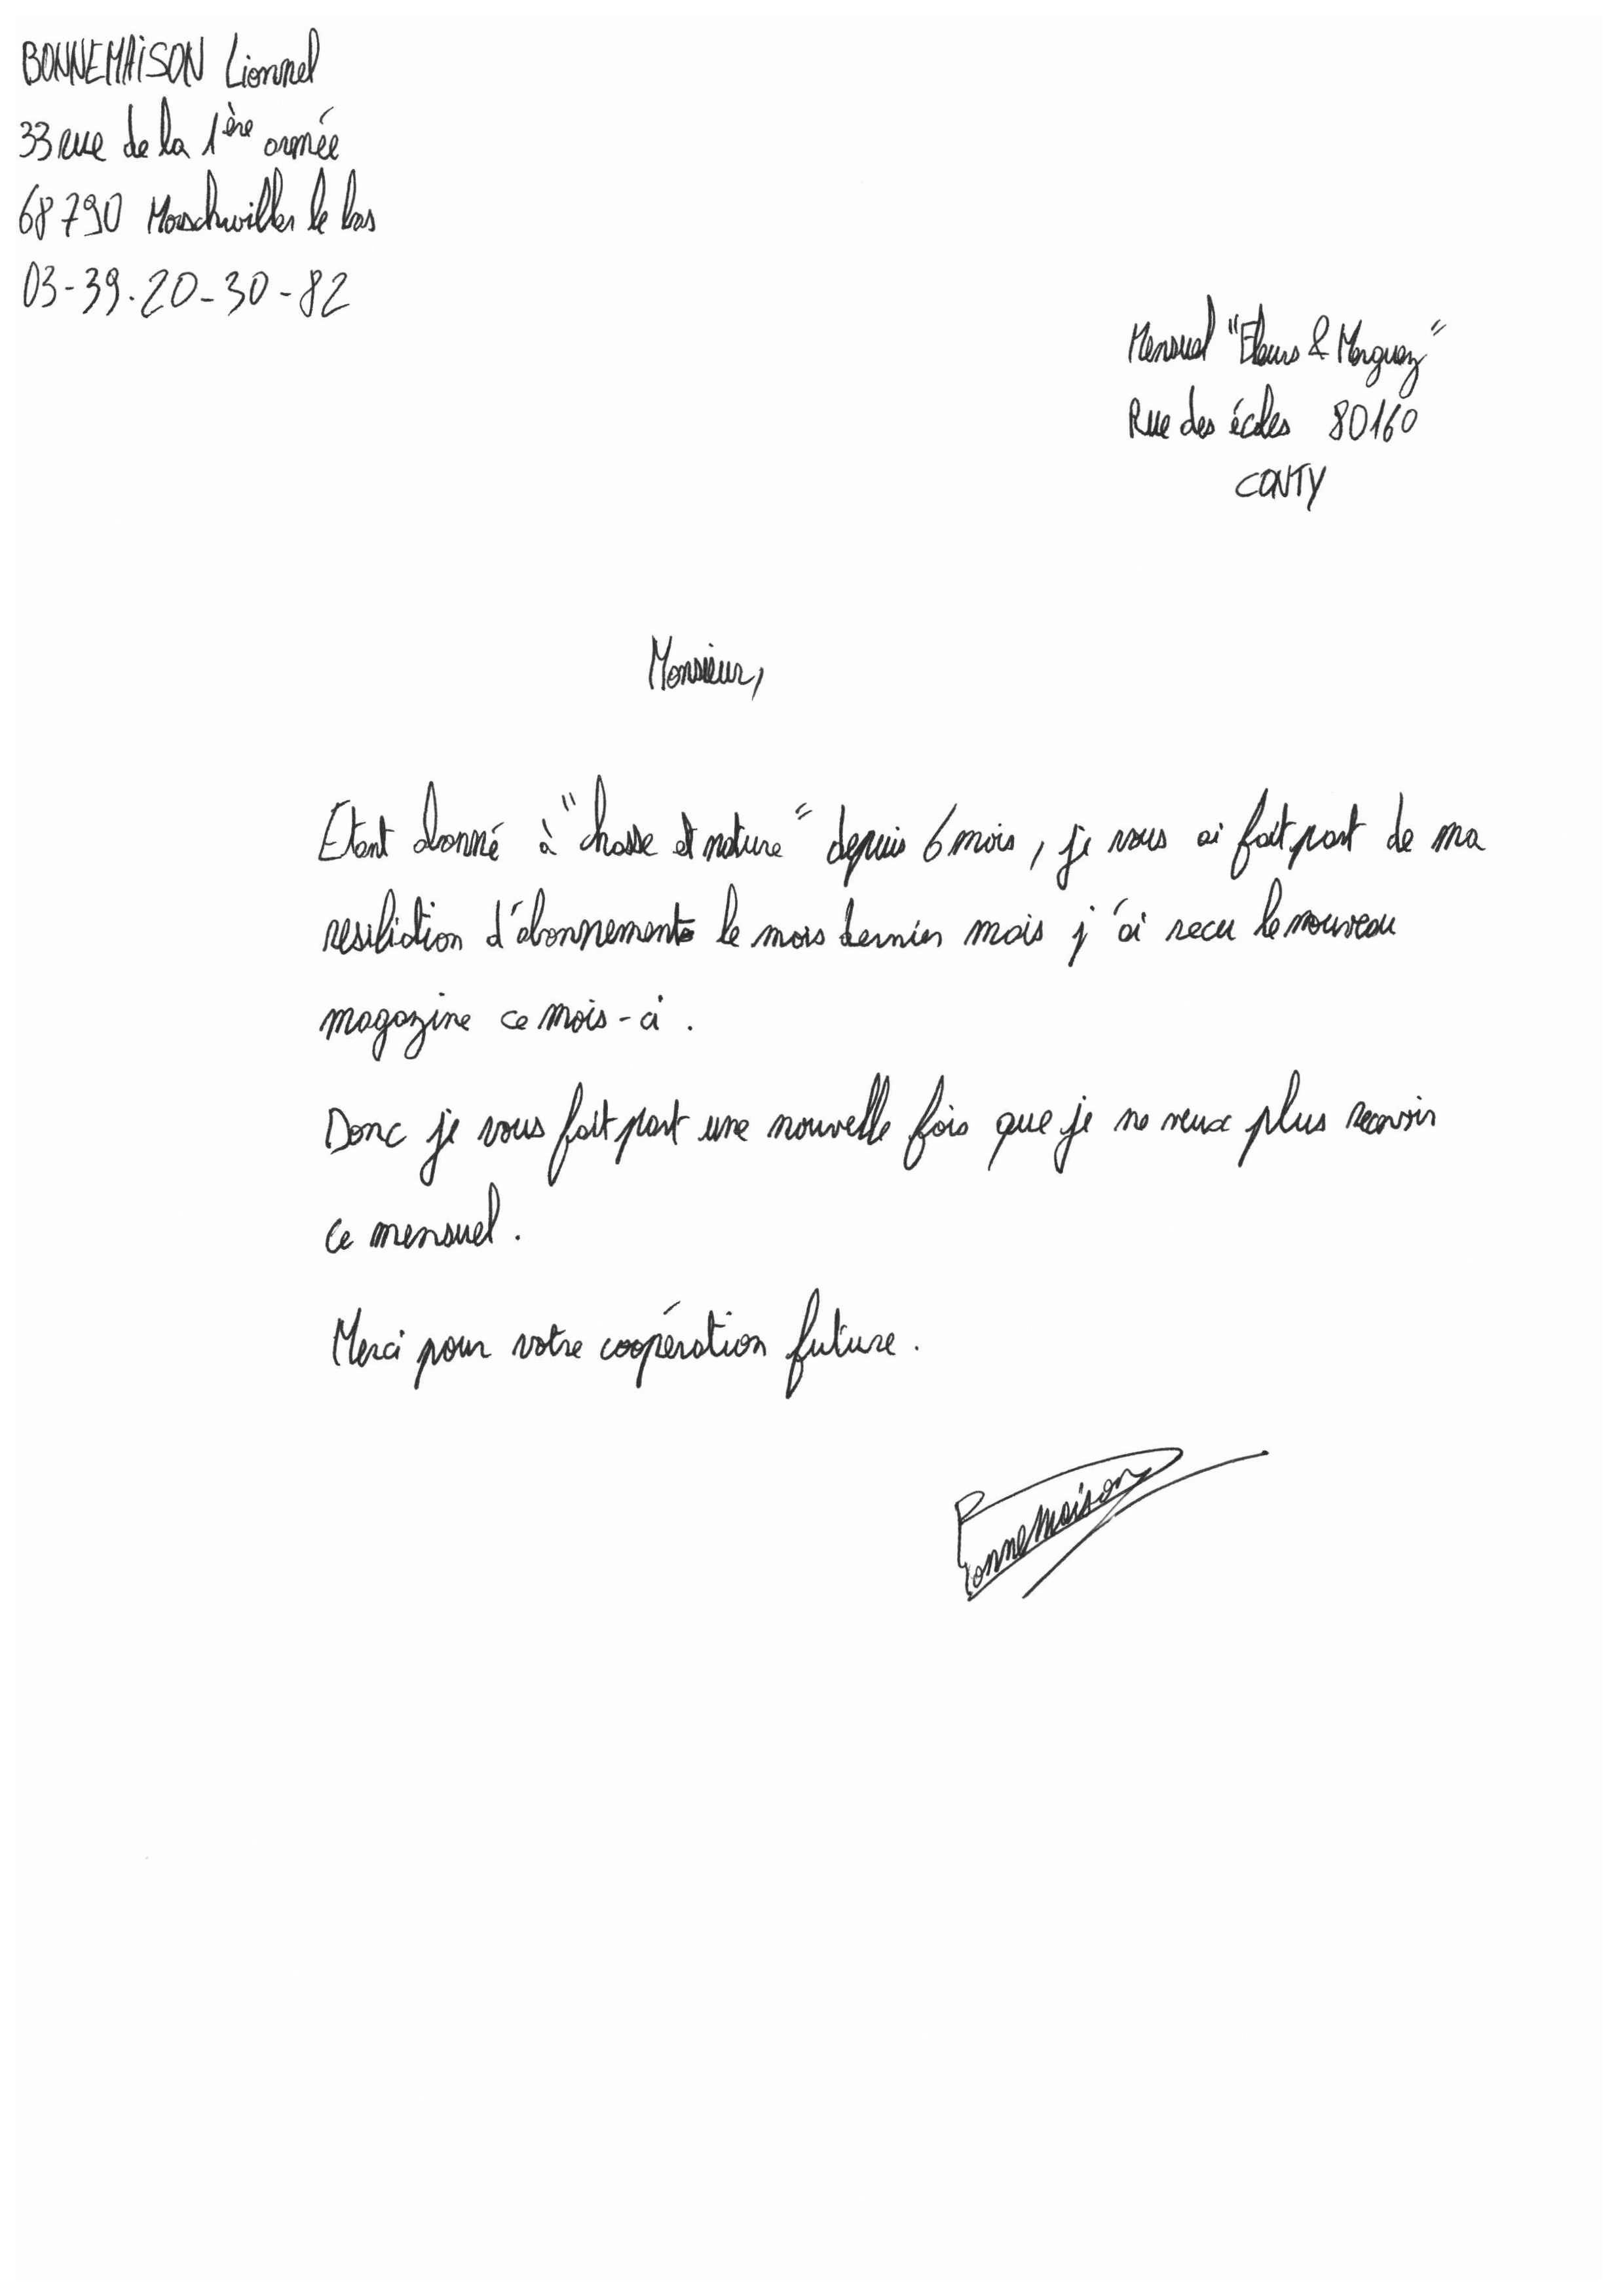 BONNEMAiSON Lionnel
33 rue de la 1ère armée
68790 Morschwiller le bas
03-39.20-30-82
Mensuel "Fleurs & Merguez"
Rue des écoles 80160
CONTY
Monsieur,
Etant abonné à "chasse et nature" depuis 6 mois, je vous ai fait part de ma
resiliation d'abonnement le mois dernier mais j'ai recu le nouveau
magazine ce mois-ci.
Donc je vous fait part une nouvelle fois que je ne veux plus recevoir
ce mensuel.
Merci pour votre coopération future.
Bonnemaison